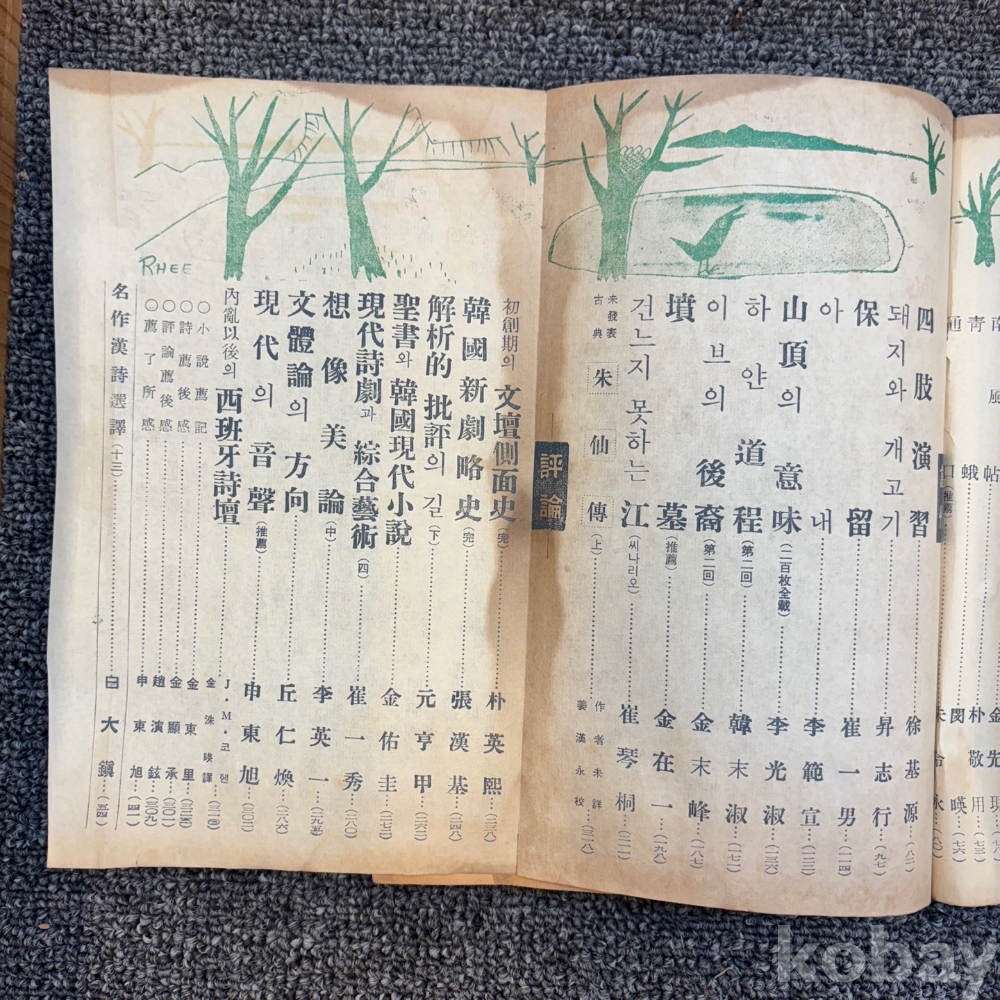 南風
帖
金
青蛾
朴敬用…(七三)
通口(推薦)
閔暎…(七六)
四肢演習…徐基源…(八二)
돼지와 개고기…昇志行…(九七)
保留…崔一男…(一一四)
아내…李範宣…(一二三)
山頂의 意味(二百枚全載)…李光淑…(一三六)
하얀 道程(第二回)…韓末淑…(一七一)
이브의 後裔(第二回)…金末峰…(一八七)
墳墓(推薦)…金在一…(一九八)
건느지 못하는 江(씨나리오)…崔琴桐…(二一一)
未發表古典 朱仙傳(上)…作者未詳 姜漢永校…(三一八)
評論
初創期의 文壇側面史(完)…朴英熙…(二三八)
韓國新劇略史(完)…張漢基…(二四八)
解析的 批評의 길(下)…元亨甲…(二六二)
聖書와 韓國現代小說…金佑圭…(二七二)
現代詩劇과 綜合藝術(四)…崔一秀…(二八〇)
想像美論(中)…李英一…(二九五)
文體論의 方向…丘仁煥…(二八六)
現代의 音聲(推薦)…申東旭…(三〇三)
內亂以後의 西班牙詩壇…J·M·코헨 金洙暎譯…
○小說薦記…金東里
○詩薦後感…金顯承
○評論薦後感…趙演鉉…(三〇九)
○薦了所感…申東旭
名作漢詩選譯(十三)…白大鎭…(五四)
RHEE
kobay